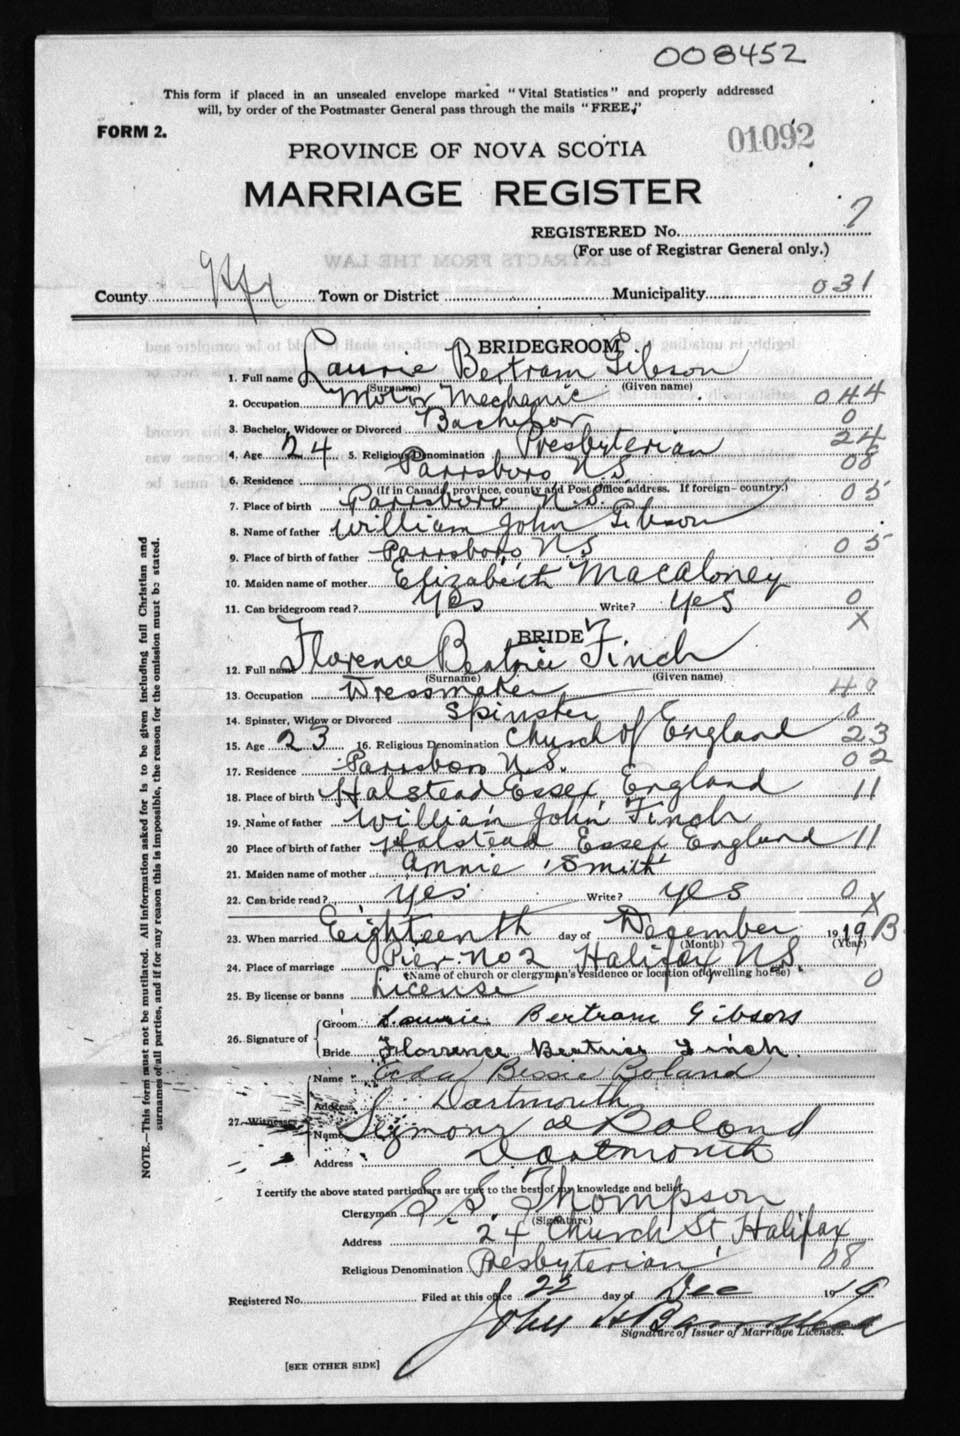 008452
This form if placed in an unsealed envelope marked "Vital Statistics" and properly addressed
will, by order of the Postmaster General pass through the mails "FREE."
FORM 2.
01092
PROVINCE OF NOVA SCOTIA
MARRIAGE REGISTER
REGISTERED No. 7
(For use of Registrar General only.)
County Hfx Town or District Municipality 031
BRIDEGROOM
1. Full name Laurie Bertram Gibson
(Surname) (Given name)
2. Occupation Motor Mechanic 044
3. Bachelor, Widower or Divorced Bachelor 0
4. Age 24 5. Religious Denomination Presbyterian 24
6. Residence Parrsboro N.S. 08
(If in Canada, province, county and Post Office address. If foreign—country.)
7. Place of birth Parrsboro N.S. 05
8. Name of father William John Gibson
9. Place of birth of father Parrsboro N.S 05
10. Maiden name of mother Elizabeth Macaloney
11. Can bridegroom read? Yes Write? Yes 0
X
BRIDE
12. Full name Florence Beatrice Finch
(Surname) (Given name)
13. Occupation Dressmaker 40
14. Spinster, Widow or Divorced Spinster 0
15. Age 23 16. Religious Denomination Church of England 23
17. Residence Parrsboro N.S. 02
18. Place of birth Halstead Essex England 11
19. Name of father William John Finch
20 Place of birth of father Halstead Essex England 11
21. Maiden name of mother Annie Smith
22. Can bride read? Yes Write? Yes 0
X
23. When married Eighteenth day of December 1919 B
(Month) (Year)
24. Place of marriage Pier No 2 Halifax N.S.
(Name of church or clergyman's residence or location of dwelling house) 0
25. By license or banns License
26. Signature of Groom Laurie Bertram Gibson
Bride Florence Beatrice Finch.
27. Witnesses Name Bessie Boland
Address Dartmouth
Name Boland
Address Dartmouth
I certify the above stated particulars are true to the best of my knowledge and belief.
Clergyman S. S. Thompson
(Signature)
Address 24 Church St Halifax
Religious Denomination Presbyterian 08
Registered No. Filed at this office 22 day of Dec 1919
John H Barnstead
Signature of Issuer of Marriage Licenses.
[SEE OTHER SIDE]
NOTE.—This form must not be mutilated. All information asked for is to be given including full Christian and
surnames of all parties, and if for any reason this is impossible, the reason for the omission must be stated.